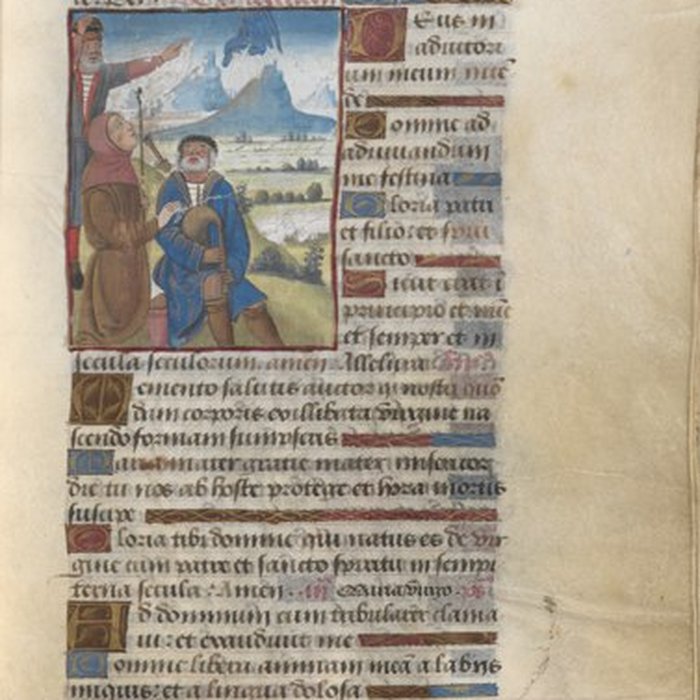 Eus in
adiutori
um meum inte
de
Domine ad
adiuuandum
me festina
Gloria patri
et filio: et spiri
sancto
Sicut erat i
principio et nuc
et semper et in
secula seculorum. amen Alleluia
Memento salutis auctor
dum corporis ex illibata virgine na
scendo formam sumpseris
Maria mater gratie mater misericor
die tu nos ab hoste protege et hora mortis
suscipe
Gloria tibi domine qui natus es de vir
gine cum patre et sancto spiritu in sempi
terna secula. Amen
Ad dominum cum tribularer clama
ui: et exaudiuit me
Domine libera animam mea a labiis
iniquis: et a lingua dolosa